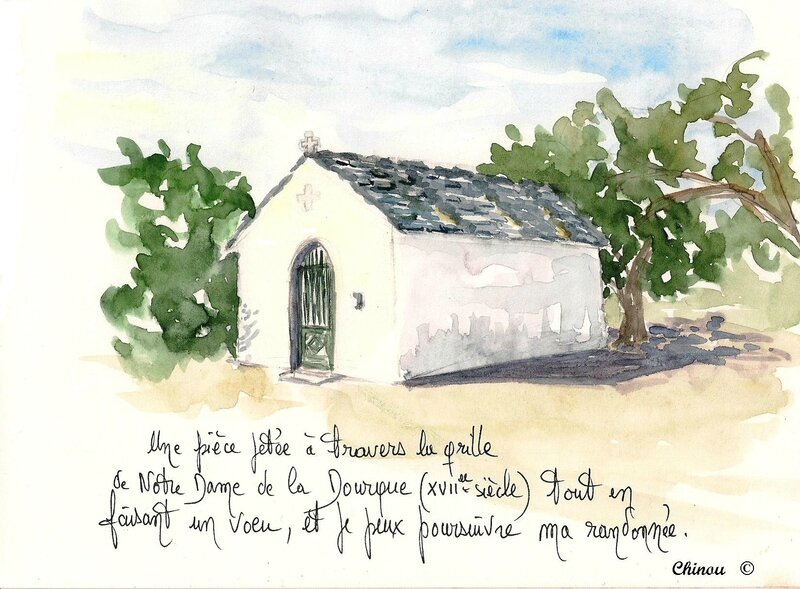 Une pièce jetée à travers la grille
de Notre Dame de la Dourgue (XVIIee siècle) tout en
faisant un voeu, et je peux poursuivre ma randonnée.
Chinou ©